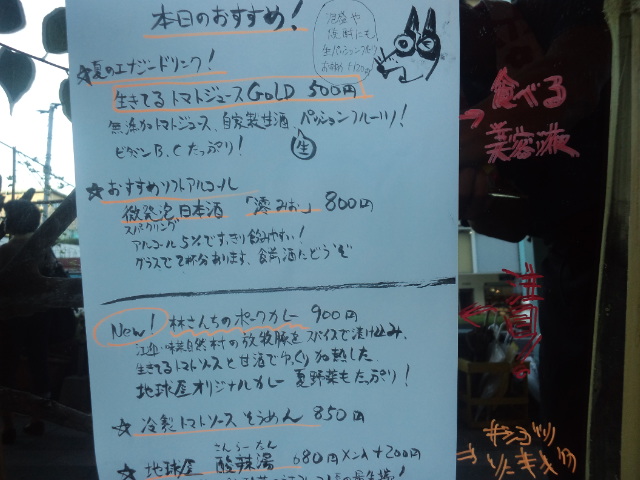 本日のおすすめ!
★夏のエナジードリンク!
生きてるトマトジュースGOLD 500円
無添加トマトジュース、自家製甘酒 パッションフルーツ!
生
ビタミンB、Cたっぷり!
→食べる
美容液
★おすすめソフトアルコール
微発泡日本酒「澪みお」800円
スパークリング
アルコール5%ですっきり飲みやすい!
グラスで2杯分あります、食前酒にどうぞ
New! 林さんちのポークカレー 900円
自然村の放牧豚をスパイスで漬け込み、
生きてるトマトソースと甘酒でゆっくり加熱した
地球屋オリジナルカレー 夏野菜もたっぷり!
←注目!
★冷製トマトソースそうめん 850円
さんらーたん
★地球屋 酸辣湯 680円メン入+200円